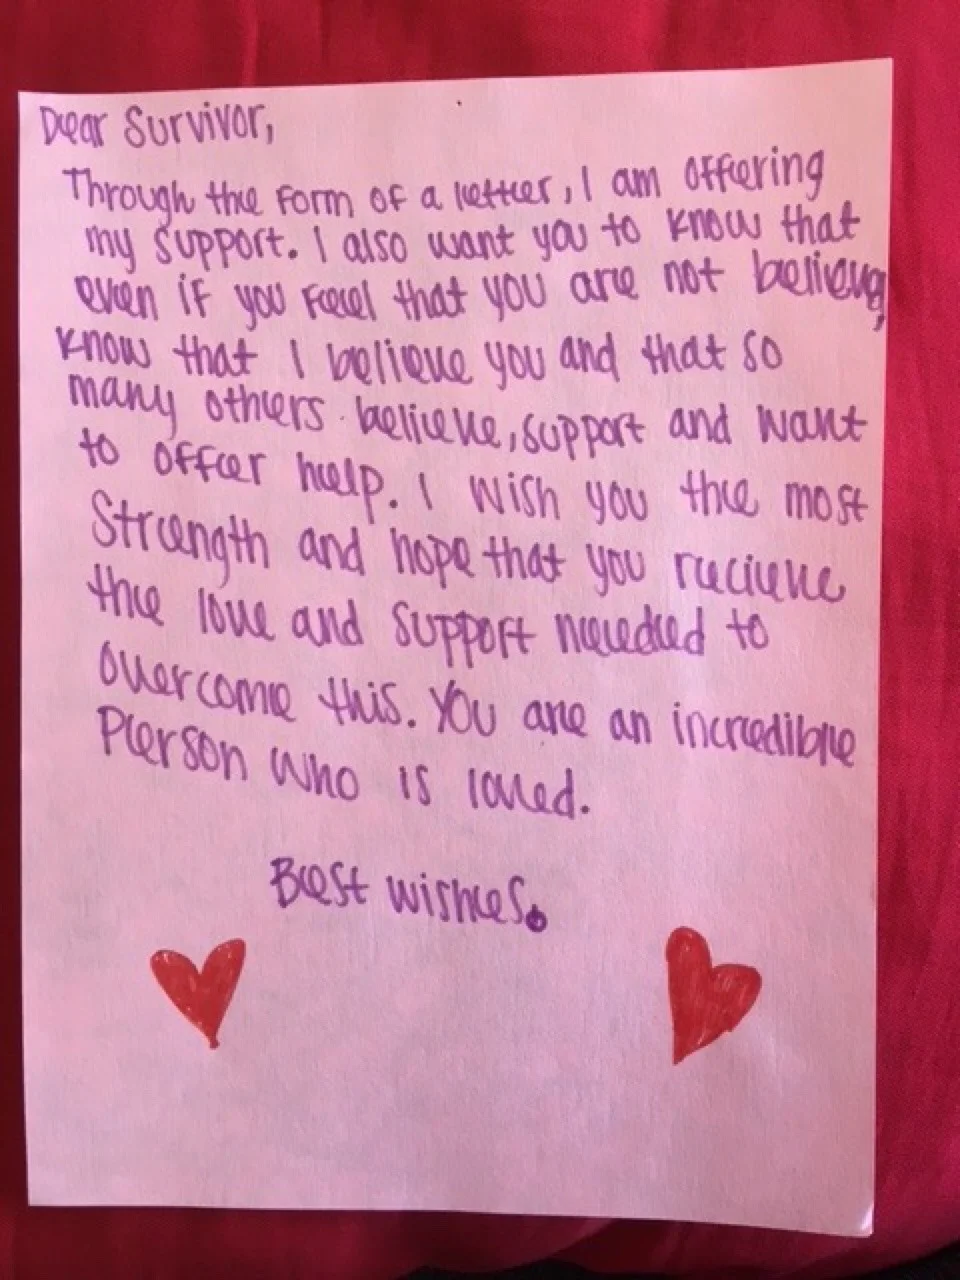 Dear Survivor,
Through the form of a letter, I am offering
my support. I also want you to know that
even if you feel that you are not believed,
know that I believe you and that so
many others believe, support and want
to offer help. I wish you the most
strength and hope that you recieve
the love and support needed to
overcome this. You are an incredible
person who is loved.
Best wishes.